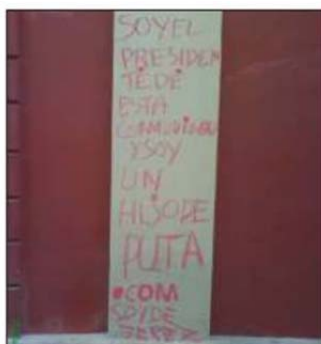 SOYEL
PRESIDEN
TEDE
ESTA
COMUNIDAD
YSOY
UN
HIJODE
PUTA
.COM
SOYDE